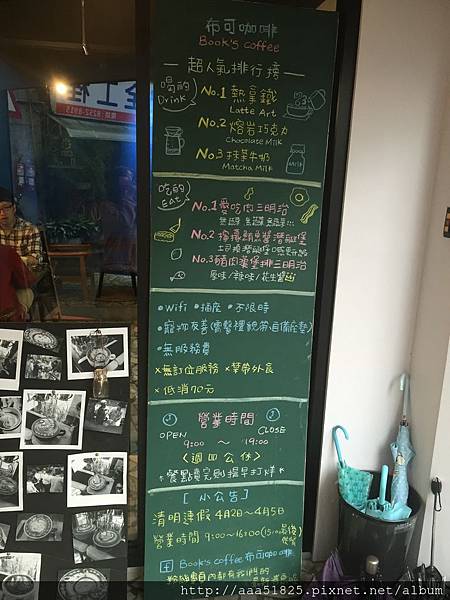 布可咖啡
Book's coffee
超人氣排行榜
喝的
Drink
No.1 熱拿鐵
Latte Art
No.2 熔岩巧克力
Chocolate Milk
No.3 抹茶牛奶
Matcha Milk
吃的
Eat
No.1 愛吃肉三明治
No.2
No.3 豬肉漢堡排三明治
原味/辣味/花生醬
•Wifi •插座 •不限時
•寵物友善
•無服務費
×無訂位服務 ×禁帶外食
×低消70元
營業時間
OPEN
CLOSE
9:00 ~ 19:00
〈週四公休〉
*餐點賣完則提早打烊*
[小公告]
清明連假 4月2日~4月5日
營業時間 9:00~16:00
Book's coffee 布可咖啡
http://aaa51825.pixnet.net/album